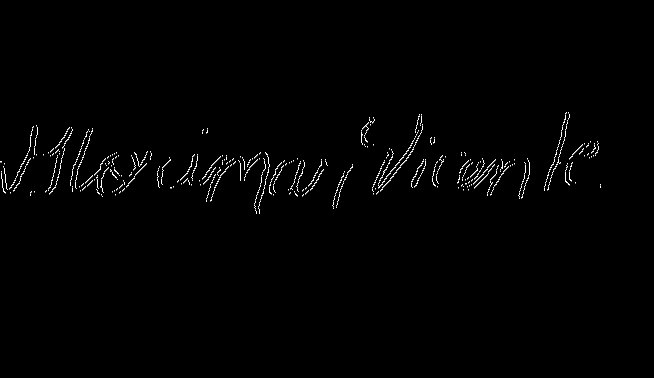 Maxima, Vicente